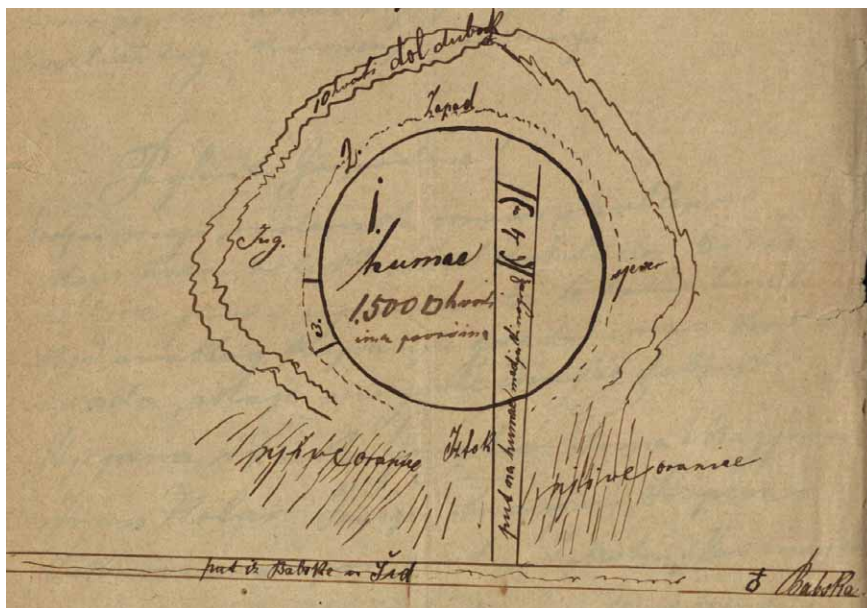 10 hvati dol dubok
Zapad
2.
1.
Jug.
humac
1500 □ hvati
ima površina
3.
sjever
4
put na humac medju vinograd
Iztok
njive oranice
njive oranice
put iz Babske u Šid
Babska